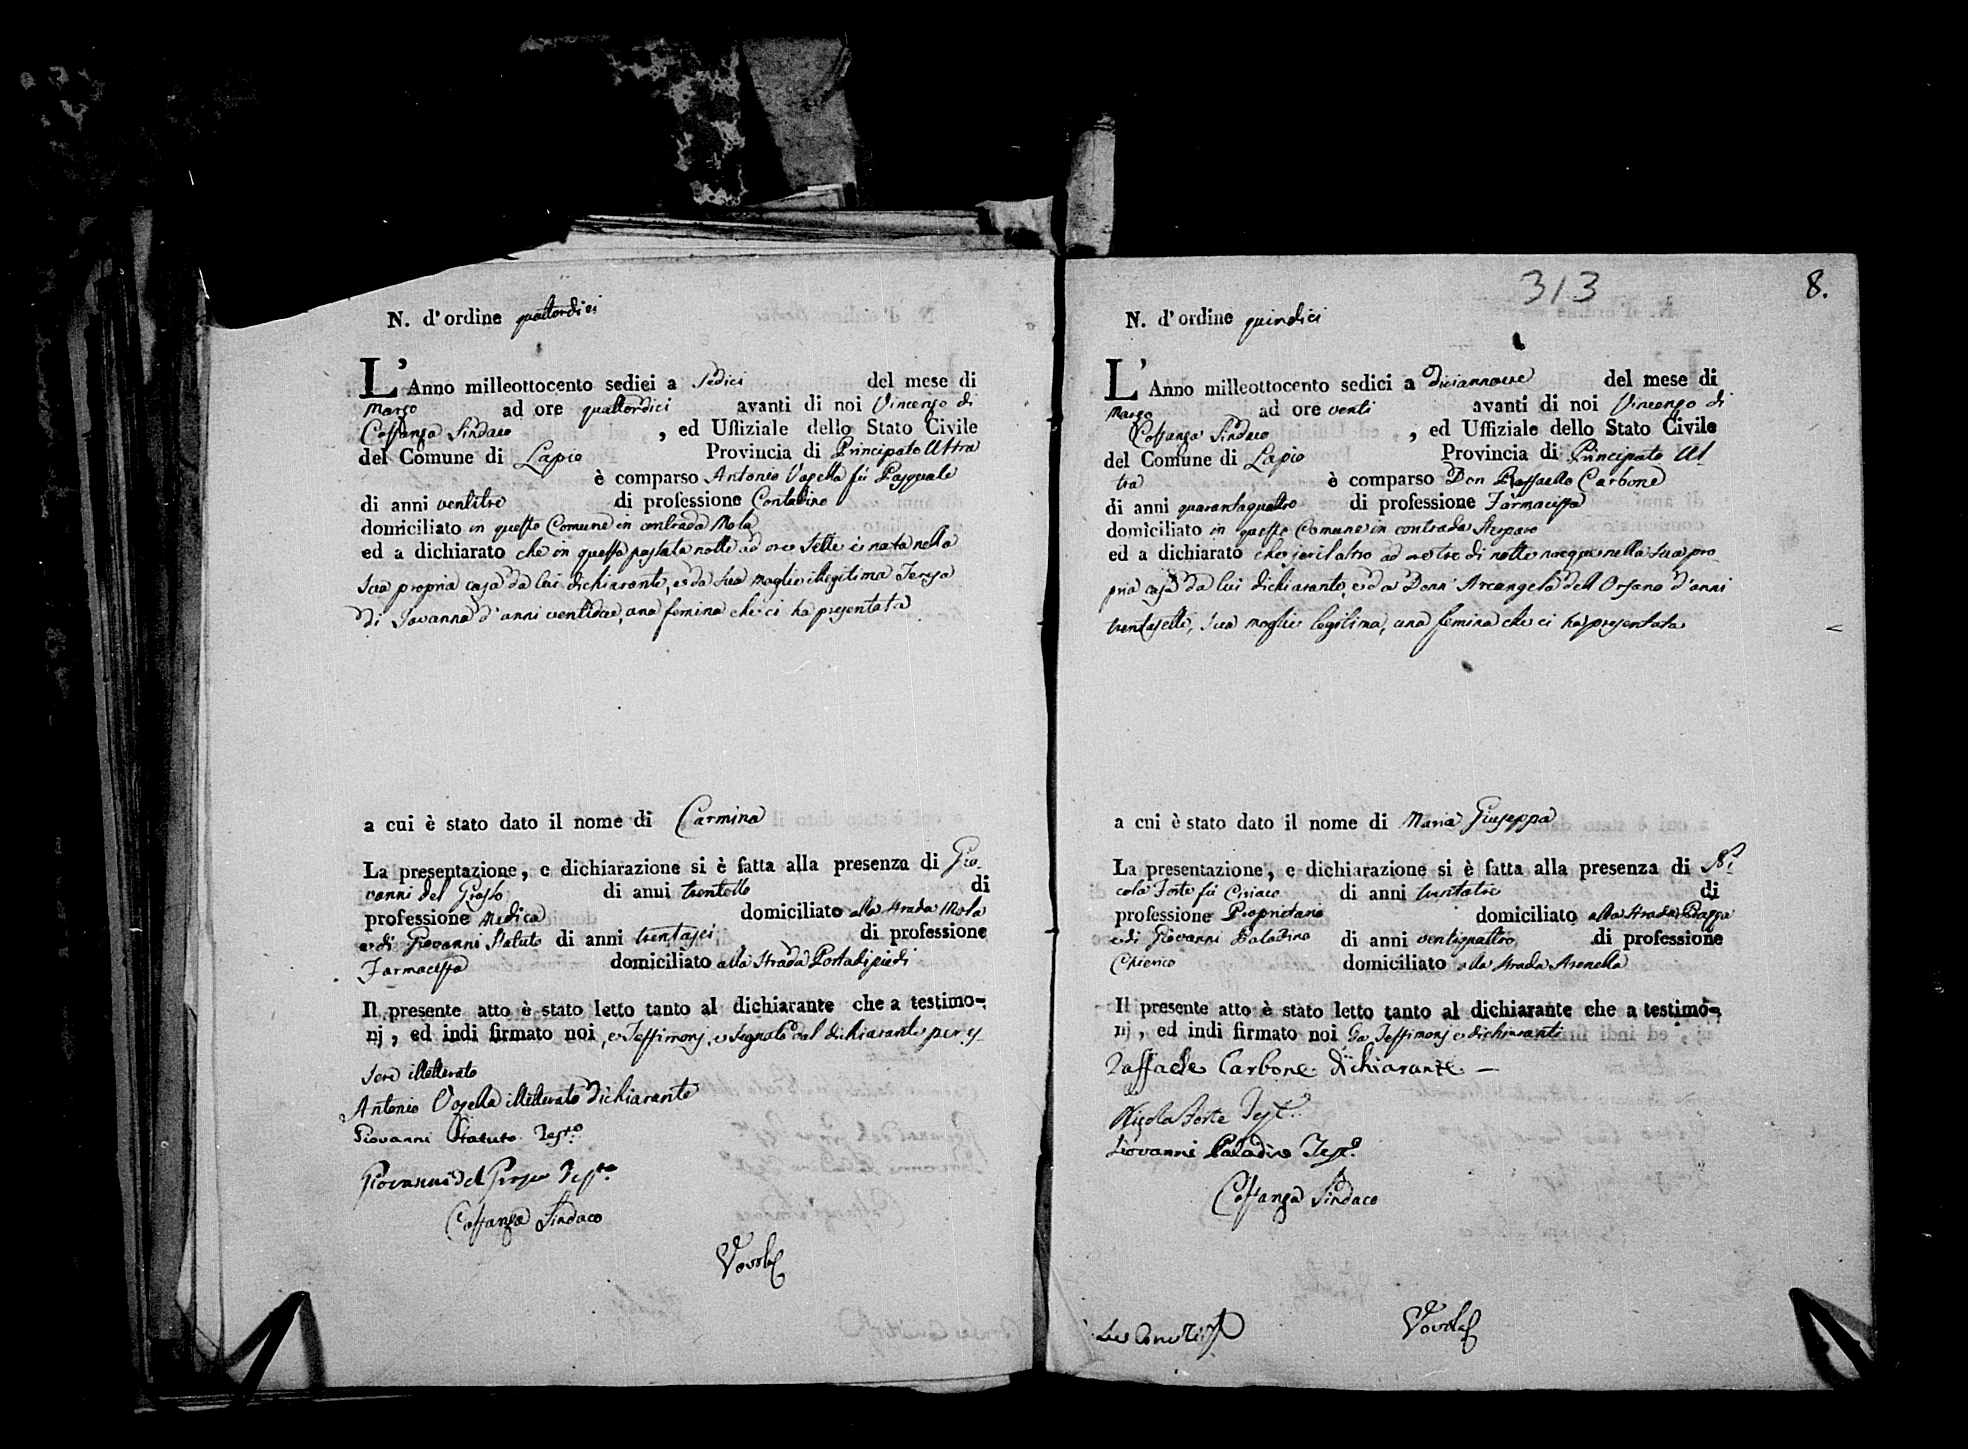 N. d'ordine quattordici
L'Anno milleottocento sedici a Sedici del mese di
Marzo ad ore quattordici avanti di noi Vincenzo di
Costanza Sindaco , ed Uffiziale dello Stato Civile
del Comune di Lapio Provincia di Principato Ultra
è comparso Antonio Vozella fù Pasquale
di anni ventitre di professione Contadino
domiciliato in questo Comune in contrada Mola
ed a dichiarato che in questa passata notte ad ore sette è nata nella
sua propria casa da lui dichiarante, e da sua moglie
Teresa
di Iovanna d'anni ventidue, una femina che ci ha presentata
a cui è stato dato il nome di Carmina
La presentazione, e dichiarazione si è fatta alla presenza di Gio
vanni del Grosso di anni trentotto di
professione Medico domiciliato alla strada Mola
e di Giovanni Statuto di anni trentasei di professione
Farmacista domiciliato alla strada Portadipiedi
Il presente atto è stato letto tanto al dichiarante che a testimo-
nj, ed indi firmato noi, e Testimonj, e segnato dal dichiarante per es-
sere illetterato
Antonio Vozella illetterato dichiarante
Giovanni Statuto Testo
Giovanni del Grosso Testo
Costanza Sindaco
313
8.
N. d'ordine quindici
L'Anno milleottocento sedici a diciannove del mese di
Marzo ad ore venti avanti di noi Vincenzo di
Costanza Sindaco , ed Uffiziale dello Stato Civile
del Comune di Lapio Provincia di Principato Ul
tra è comparso Don Raffaele Carbone
di anni quarantaquattro di professione Farmacista
domiciliato in questo Comune in contrada
ed a dichiarato che ieri l'altro ad ore tre di notte nacque nella sua pro
pria casa da lui dichiarante, e da Donn'Arcangela dell'Orfano d'anni
trentasette, sua moglie legitima, una femina che ci ha presentata
a cui è stato dato il nome di Maria Giuseppa
La presentazione, e dichiarazione si è fatta alla presenza di Ni
cola Forte fù Ciriaco di anni trentatre di
professione Proprietario domiciliato alla strada Piazza
e di Giovanni Paladino di anni ventiquattro di professione
Chierico domiciliato alla strada Arenella
Il presente atto è stato letto tanto al dichiarante che a testimo-
nj, ed indi firmato noi Testimonj e dichiarante
Raffaele Carbone dichiarante
Nicola Forte Testo
Giovanni Paladino Testo
Costanza Sindaco